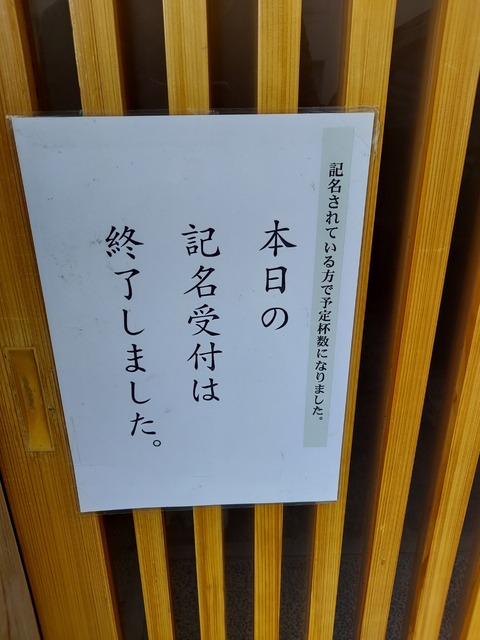 記名されている方で予定杯数になりました。
本日の
記名受付は
終了しました。